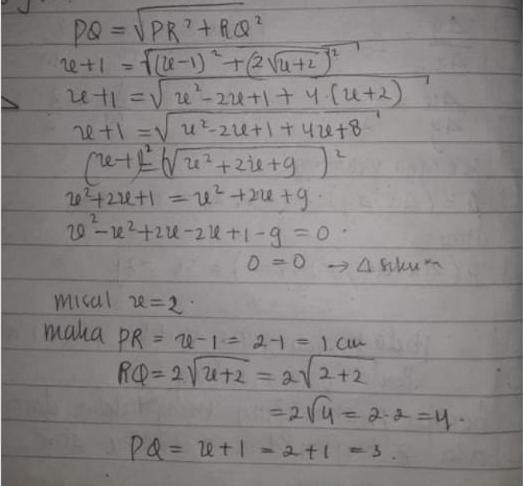 PQ = √PR² + RQ²
x+1 = √(x-1)² + (2√x+2)²
x+1 = √x²-2x+1 + 4.(x+2)
x+1 = √x²-2x+1 + 4x+8
(x+1)² = (√x²+2x+9)²
x²+2x+1 = x²+2x+9.
x²-x²+2x-2x+1-9 = 0.
0 = 0 → Δ siku²
misal x=2.
maka PR = x-1 = 2-1 = 1 cm
RQ = 2√x+2 = 2√2+2
= 2√4 = 2.2 = 4.
PQ = x+1 = 2+1 = 3.